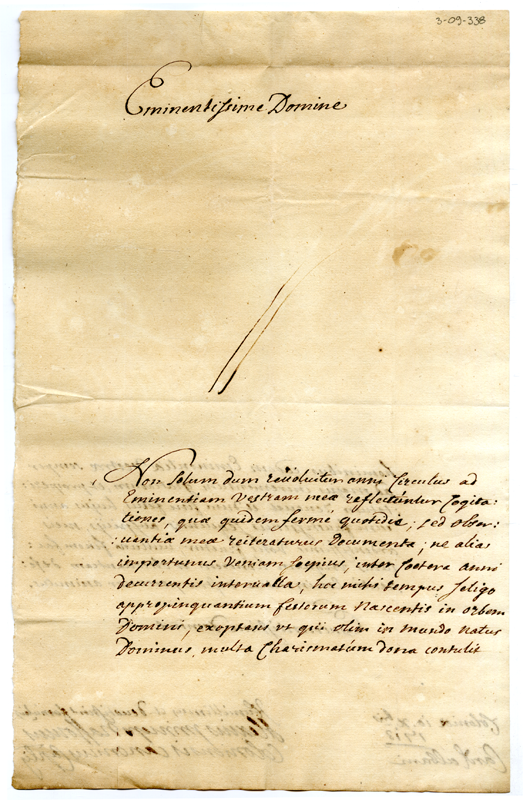 3-09-338
Eminentissime Domine
Non solum dum revolvitur anni Circulus ad
Eminentiam Vestram meæ reflectuntur Cogita:
tiones, quæ quidem fermè quotidie; sed obser:
:vantiæ meæ reiteraturus Documenta; ne alias
importunus Veniam sœpius, inter Cœtera anni
decurrentis intervalla, hoc mihi tempus seligo
appropinquantium festorum Nascentis in orbem
Domini, exoptans vt qui olim in mundo natus
Dominus, multa Charismatum dona contulit